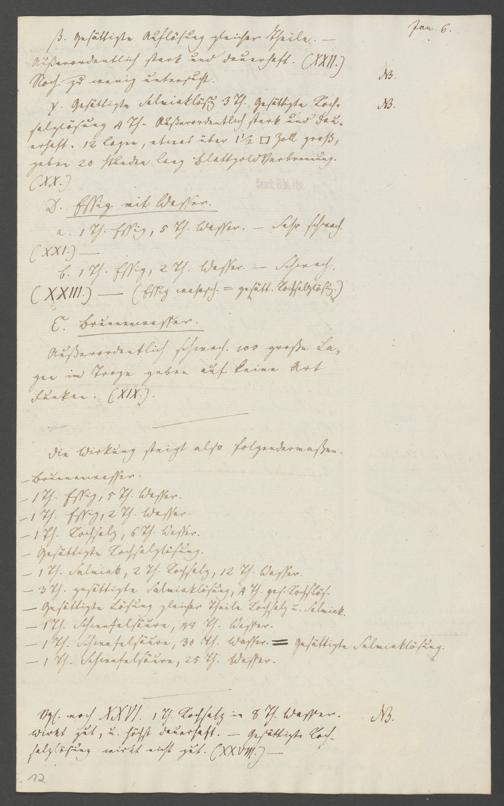 Jan. 6.
β. Gesättigte Auflösung gleicher Theile. —
Außerordentlich stark und dauerhaft. (XXII.)
Noch zu wenig untersucht. NB.
γ. Gesättigte Salmiaklösg 3 Th. Gesättigte Koch-
salzlösung 4 Th. Außerordentlich stark und dau-
erhaft. 12 Lagen, etwas über 1½ □ Zoll groß,
geben 20 Stunden lang Blattgoldverbrennung.
(XX.)
NB.
D. Essig mit Wasser.
a. 1 Th. Essig, 5 Th. Wasser. — Sehr schwach
(XXI.) —
b. 1 Th. Essig, 2 Th. Wasser — Schwach.
(XXIII.) — (Essig = gesätt. Kochsalzlösg)
Brunnenwasser.
Außerordentlich schwach. 100 große La-
gen im Troge geben auf keine Art
Funken. (XIX.)
Die Wirkung steigt also folgendermaßen.
— Brunnenwasser.
— 1 Th. Essig, 5 Th. Wasser.
— 1 Th. Essig, 2 Th. Wasser.
— 1 Th. Kochsalz, 6 Th. Wasser.
— Gesättigte Kochsalzlösung.
— 1 Th. Salmiak, 2 Th. Kochsalz, 12 Th. Wasser.
— 3 Th. gesättigte Salmiaklösung, 4 Th. ges. Kochslzlös.
— Gesättigte Lösung gleicher Theile Kochsalz u. Salmiak
— 1 Th. Schwefelsäure, Th. Wasser.
— 1 Th. Schwefelsäure, 30 Th. Wasser. = Gesättigte Salmiaklösung.
— 1 Th. Schwefelsäure, 25 Th. Wasser.
Vgl. noch XXVI. 1 Th. Kochsalz in 8 Th. Wasser. NB.
wirkt gut, u. höchst dauerhaft. — Gesättigte Koch-
salzlösung wirkt nicht gut. (XXVIII.) —
12